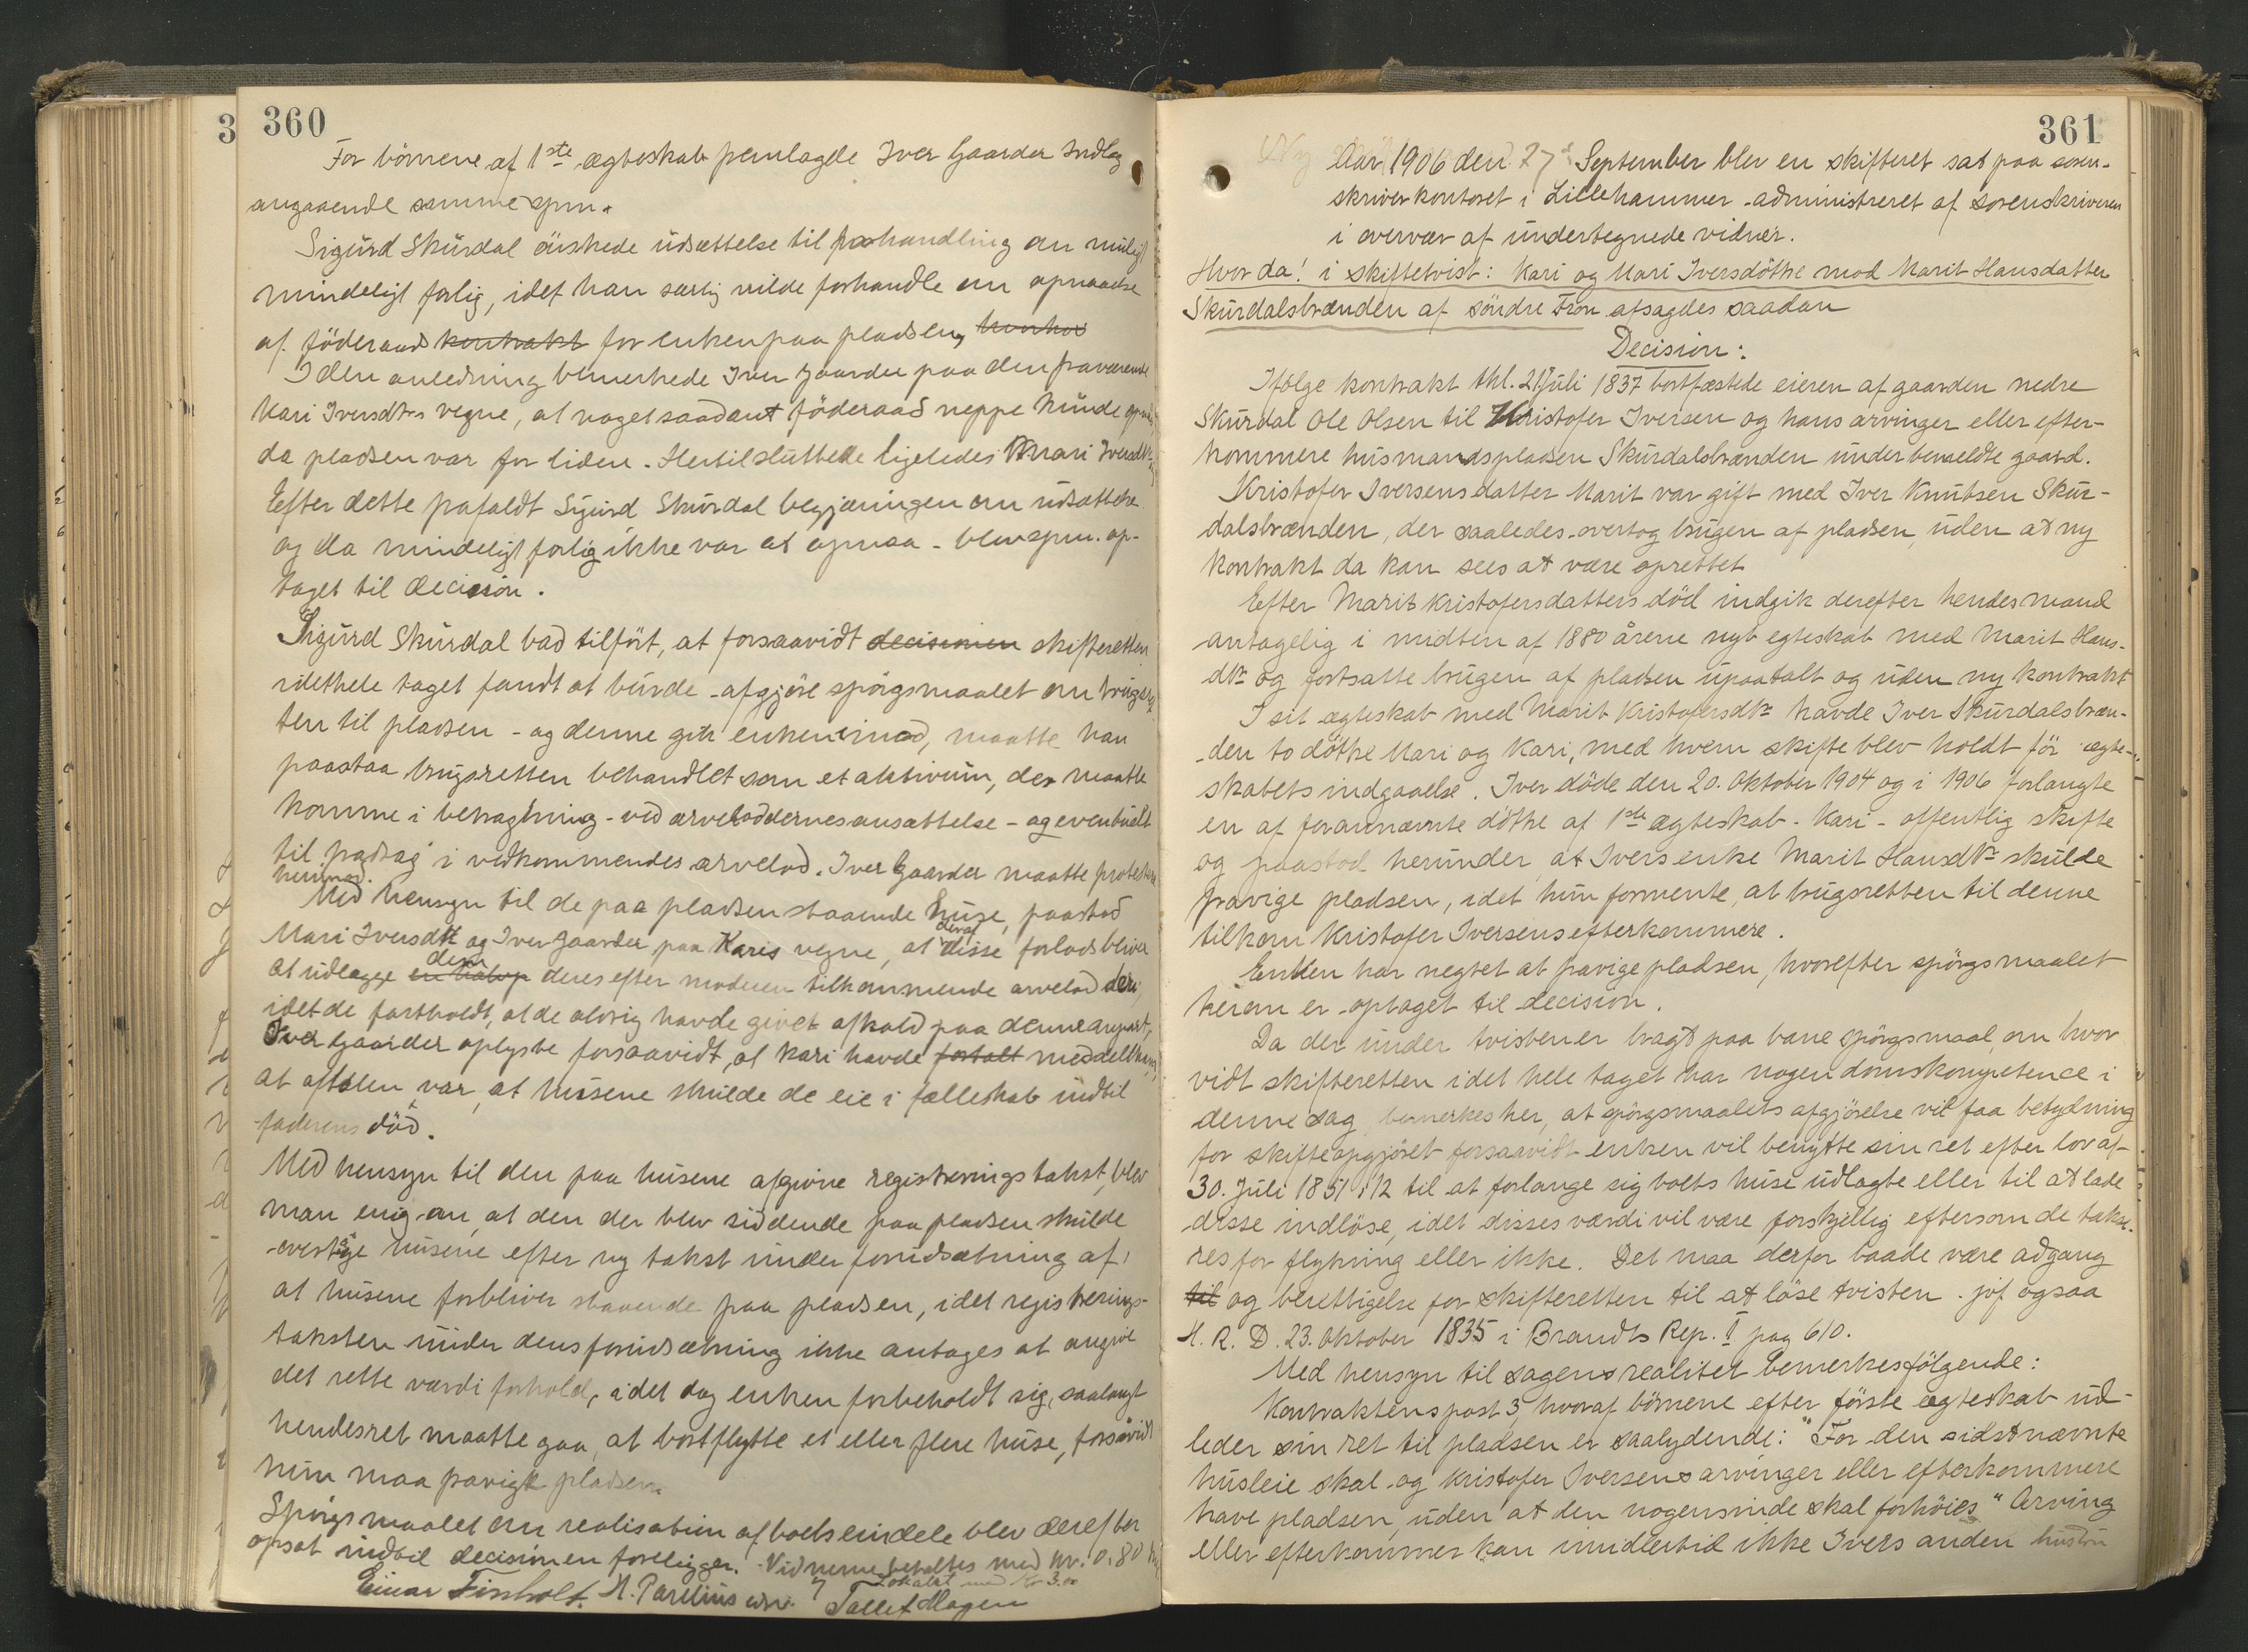 360
For börnene af 1ste ægteskab fremlagde Iver Gaarder Indlæg
angaaende samme spm.
Sigurd Skurdal önskede udsættelse til forhandling om muligt
mindeligt forlig, idet han særlig vilde forhandle om opnaaelse
af föderaad kontrakt for enken paa pladsen,
I den anledning bemerkede Iver Gaarder paa den fraværende
Kari Iversdtrs vegne, at noget saadant föderaad neppe kunde
da pladsen var for liden. Hertil sluttede ligeledes Mari Iversdtr
Efter dette frafaldt Sigurd Skurdal begjæringen om udsættelse
og da mindeligt forlig ikke var at opnaa - blev spm. op-
taget til decision.
Sigurd Skurdal bad tilfört, at forsaavidt decisionen skifteretten
i dethele taget fandt at burde afgjöre spörgsmaalet om brugsret-
ten til pladsen - og denne gik enken imod, maatte han
paastaa brugsretten behandlet som et aktivum, der maatte
komme i betragtning - ved arveloddernes ansættelse - og eventuelt
til fradrag i vedkommendes arvelod. Iver Gaarder maatte protestere
herimod.
Med hensyn til de paa pladsen staaende huse, paastod
Mari Iversdtr og Iver Gaarder paa Karis vegne, at deraf disse forlods bliver
at udlægge deres efter moderen tilkommende arvelod deri,
idet de fastholdt, at de aldrig havde givet afkald paa denne anpart,
Iver Gaarder oplyste forsaavidt, at Kari havde fortalt meddelt ham,
at aftalen var, at husene skulde de eie i fælleskab indtil
faderens död.
Med hensyn til den paa husene afgivne registreringstakst, blev
man enig om, at den der blev siddende paa pladsen skulde
overtage husene efter ny takst under forudsætning af,
at husene forbliver staaende paa pladsen, idet registrerings-
taksten under dens forudsætning ikke antages at angive
det rette værdiforhold, idet dog enken forbeholdt sig, saalangt
hendes ret maatte gaa, at bortflytte et eller flere huse, forsavidt
hun maa fravige pladsen.
Spörgsmaalet om realisation af boets eiendele blev derefter
opsat indtil decisionen foreligger. Vidnerne betaltes med kr. 0.80
Lokalet med Kr 3.00
Einar Finholt. H. Parelius Tollef Hagen
361
Aar 1906 den 27de September blev en skifteret sat paa soren-
skriverkontoret i Lillehammer administreret af sorenskriveren
i overvær af undertegnede vidner.
Hvor da! i skiftetvist: Kari og Mari Iversdötre mod Marit Hansdatter
Skurdalsbrænden af söndre Fron afsagdes saadan
Decision:
Ifölge kontrakt thl. 21 Juli 1837 bortfæstede eieren af gaarden nedre
Skurdal Ole Olsen til Kristofer Iversen og hans arvinger eller efter-
kommere husmandspladsen Skurdalsbrænden under bemeldte gaard.
Kristofer Iversens datter Marit var gift med Iver Knutsen Skur-
dalsbrænden, der saaledes overtog brugen af pladsen, uden at ny
kontrakt da kan sees at være oprettet
Efter Marit Kristofersdatters död indgik derefter hendes mand
antagelig i midten af 1880 årene nyt egteskab med Marit Hans-
dtr og fortsatte brugen af pladsen upaatalt og uden ny kontrakt
I sit ægteskab med Marit Kristofersdtr havde Iver Skurdalsbræn-
den to döthre Mari og Kari, med hvem skifte blev holdt för ægte-
skabets indgaaelse. Iver döde den 20. Oktober 1904 og i 1906 forlangte
en af forannævnte döthre af 1ste ægteskab - Kari - offentlig skifte
og paastod herunder at Ivers enke Marit Hansdtr skulde
fravige pladsen, idet hun formente, at brugsretten til denne
tilkom Kristofer Iversens efterkommere.
Enken har negtet at fravige pladsen, hvorefter spörgsmaalet
herom er optaget til decision.
Da der under tvisten er bragt paa bane spörgsmaal om hvor
vidt skifteretten idet hele taget har nogen domskompetence i
denne sag bemerkes her, at spörgsmaalets afgjörelse vil faa betydning
for skifteopgjöret forsaavidt enken vil benytte sin ret efter lov af
30. Juli 1851 § 12 til at forlange sig boets huse udlagte eller til at lade
disse indlöse, idet disses værdi vil være forskjellig eftersom de takse-
res for flytning eller ikke. Det maa derfor baade være adgang
til og berettigelse for skifteretten til at löse tvisten. jvf ogsaa
H. R. D. 23. Oktober 1835 i Brandts Rep. I pag 610.
Med hensyn til sagens realitet bemerkes fölgende:
Kontraktens post 3, hvoraf börnene efter förste ægteskab ud-
leder sin ret til pladsen er saalydende: "For den sidstnævnte
husleie skal og Kristofer Iversens arvinger eller efterkommere
have pladsen, uden at den nogensinde skal forhöies" Arving
eller efterkommer kan imidlertid ikke Ivers anden hustru